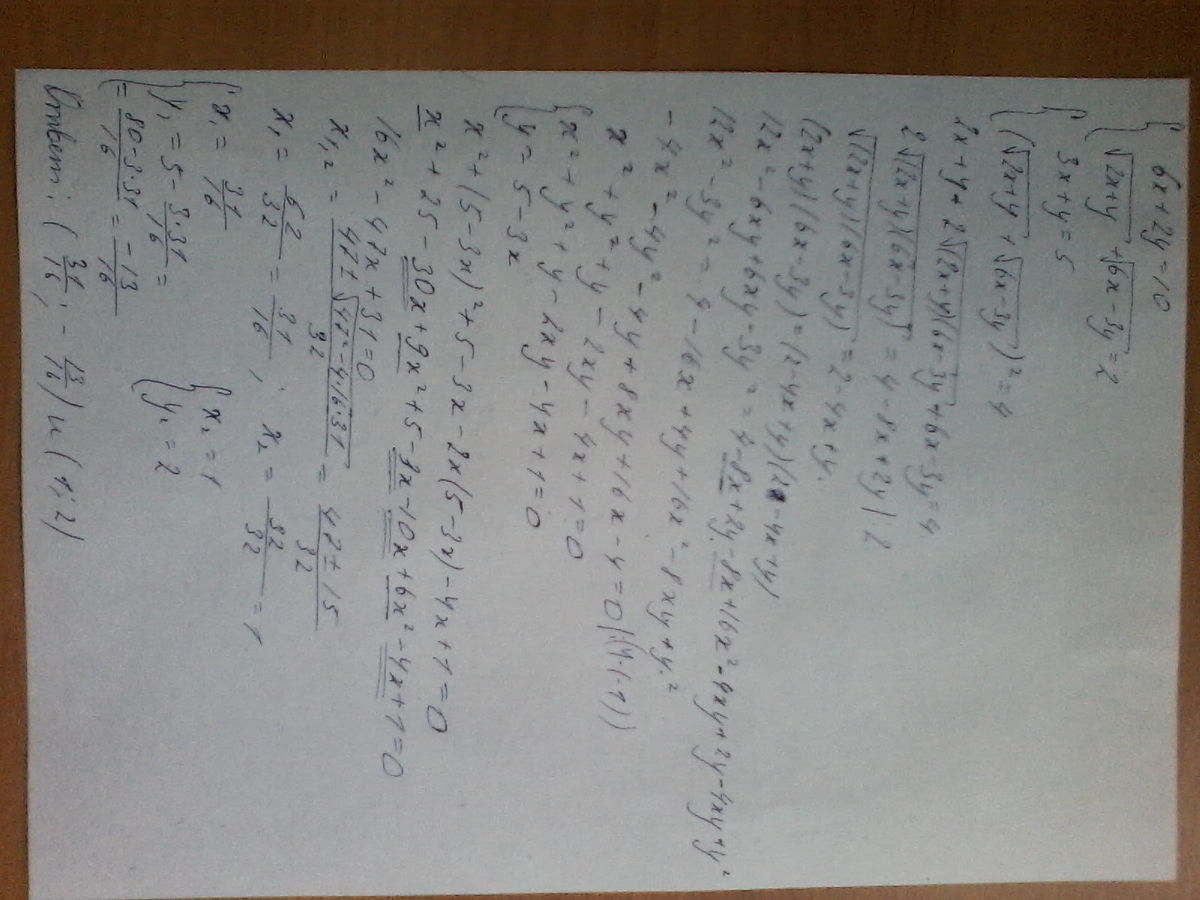 { 6x + 2y = 10
{ √(2x+y) + √(6x-3y) = 2
{ 3x + y = 5
{ (√(2x+y) + √(6x-3y))² = 4
2x + y + 2√((2x+y)(6x-3y)) + 6x - 3y = 4
2√((2x+y)(6x-3y)) = 4 - 8x + 2y | : 2
√((2x+y)(6x-3y)) = 2 - 4x + y
(2x+y)(6x-3y) = (2-4x+y)(2-4x+y)
12x² - 6xy + 6xy - 3y² = 4 - 8x + 2y - 8x + 16x² - 4xy + 2y - 4xy + y²
12x² - 3y² = 4 - 16x + 4y + 16x² - 8xy + y²
- 4x² - 4y² - 4y + 8xy + 16x - 4 = 0 | (4·(-1))
x² + y² + y - 2xy - 4x + 1 = 0
{ x² + y² + y - 2xy - 4x + 1 = 0
{ y = 5 - 3x
x² + (5-3x)² + 5 - 3x - 2x(5-3x) - 4x + 1 = 0
x² + 25 - 30x + 9x² + 5 - 3x - 10x + 6x² - 4x + 1 = 0
16x² - 47x + 31 = 0
x₁,₂ = (47 ± √(47² - 4·16·31)) / 32 = (47 ± 15) / 32
x₁ = 62/32 = 31/16 ; x₂ = 32/32 = 1
{ x₁ = 31/16 { x₂ = 1
{ y₁ = 5 - 3·31/16 = { y₂ = 2
= (80-3·31)/16 = -13/16
Ответ: (31/16; -13/16) и (1; 2)